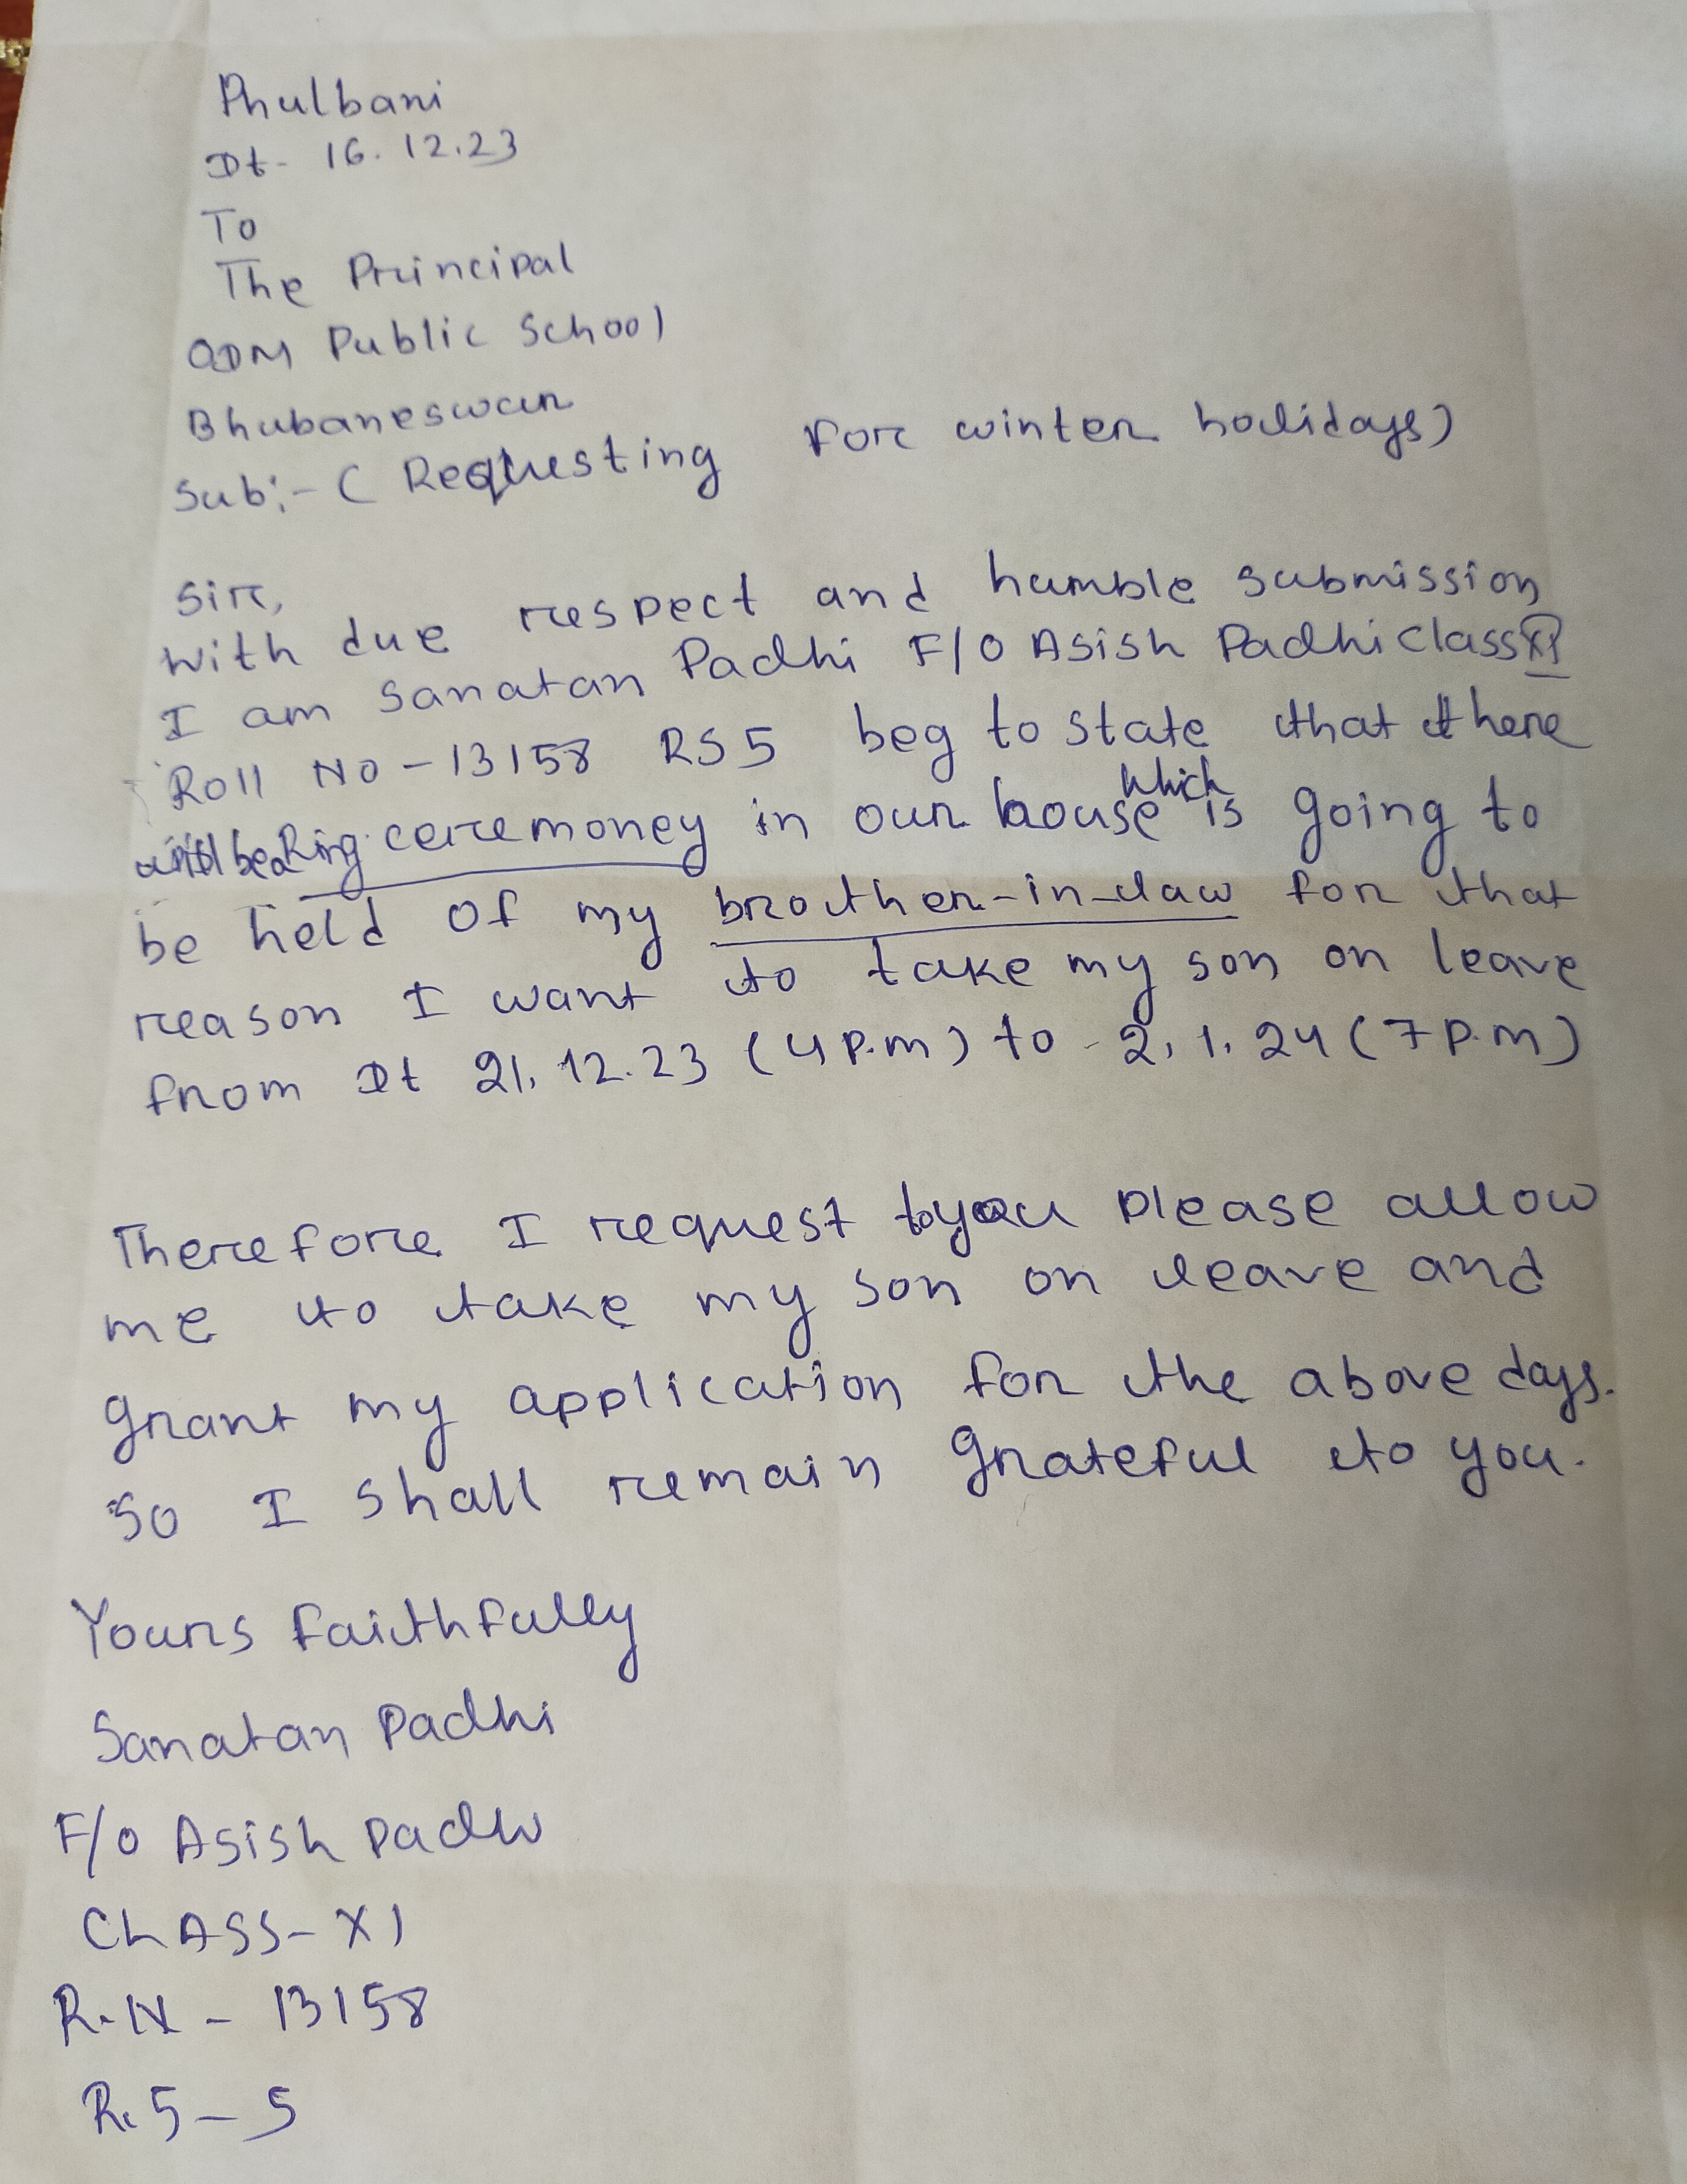 Phulbani
Dt- 16.12.23
To
The Principal
ODM Public School
Bhubaneswar
Sub:- ( Requesting for winter holidays)
Sir,
With due respect and humble submission
I am Sanatan Padhi F/O Asish Padhi Class XI
Roll No - 13158 RS5 beg to state that there
will be a Ring ceremoney in our house which is going to
be held of my brother-in-law for that
reason I want to take my son on leave
from Dt 21.12.23 (4 P.m) to 2.1.24 (7 P.m)
Therefore I request to you please allow
me to take my son on leave and
grant my application for the above days.
So I shall remain grateful to you.
Yours faithfully
Sanatan Padhi
F/O Asish Padhi
CLASS- XI
R.N - 13158
R.5 - 5